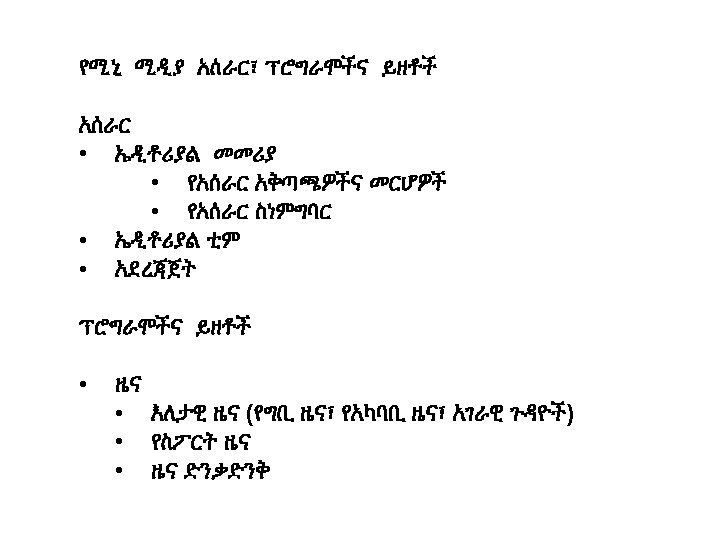 የሚኒ ሚዲያ አሰራር፣ ፕሮግራሞችና ይዘቶች
አሰራር
• ኤዲቶሪያል መመሪያ
• የአሰራር አቅጣጫዎችና መርሆዎች
• የአሰራር ስነምግባር
• ኤዲቶሪያል ቲም
• አደረጃጀት
ፕሮግራሞችና ይዘቶች
• ዜና
• እለታዊ ዜና (የግቢ ዜና፣ የአካባቢ ዜና፣ አገራዊ ጉዳዮች)
• የስፖርት ዜና
• ዜና ድንቃድንቅ